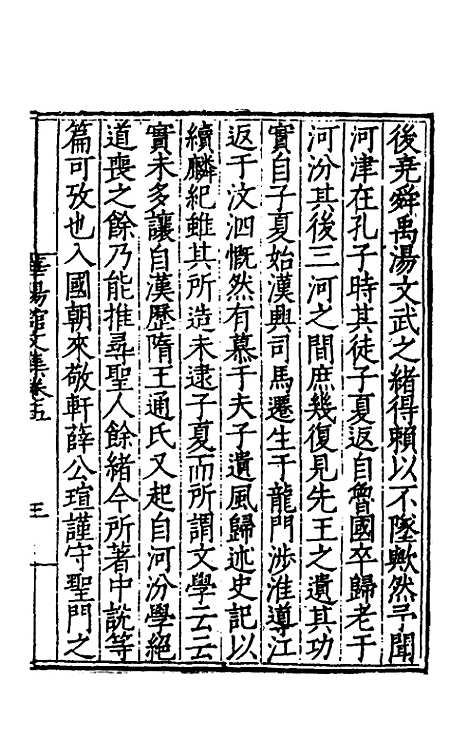 後堯舜禹湯文武之緒得賴以不墜歟然予聞
河津在孔子時其徒子夏返自魯國卒歸老于
河汾其後三河之間庶幾復見先王之遺其功
實自子夏始漢興司馬遷生于龍門涉淮導江
返于汶泗慨然有慕于夫子遺風歸述史記以
續麟紀雖其所造未逮子夏而所謂文學云云
實未多讓自漢歷隋王通氏又起自河汾學絕
道喪之餘乃能推尋聖人餘緒今所著中說等
篇可攷也入國朝來敬軒薛公瑄謹守聖門之
華陽館文集卷五